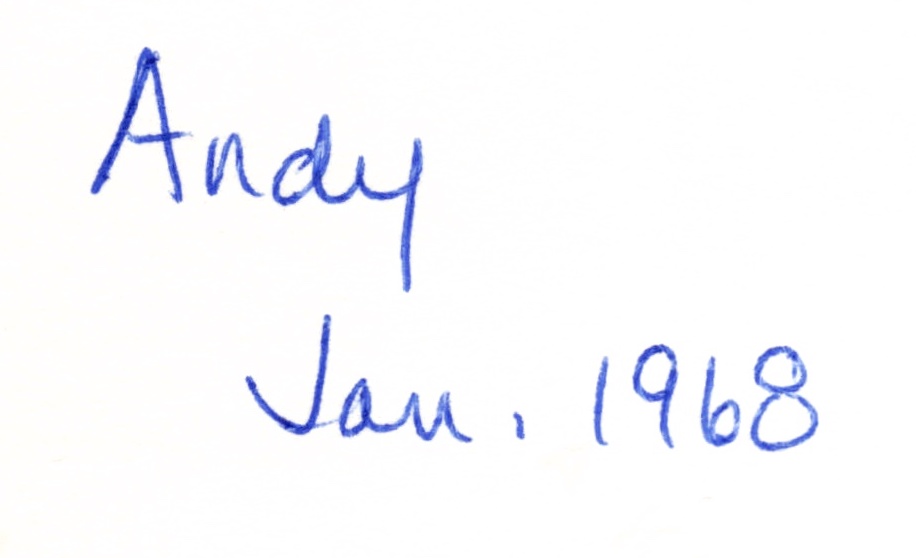 Andy
Jan. 1968